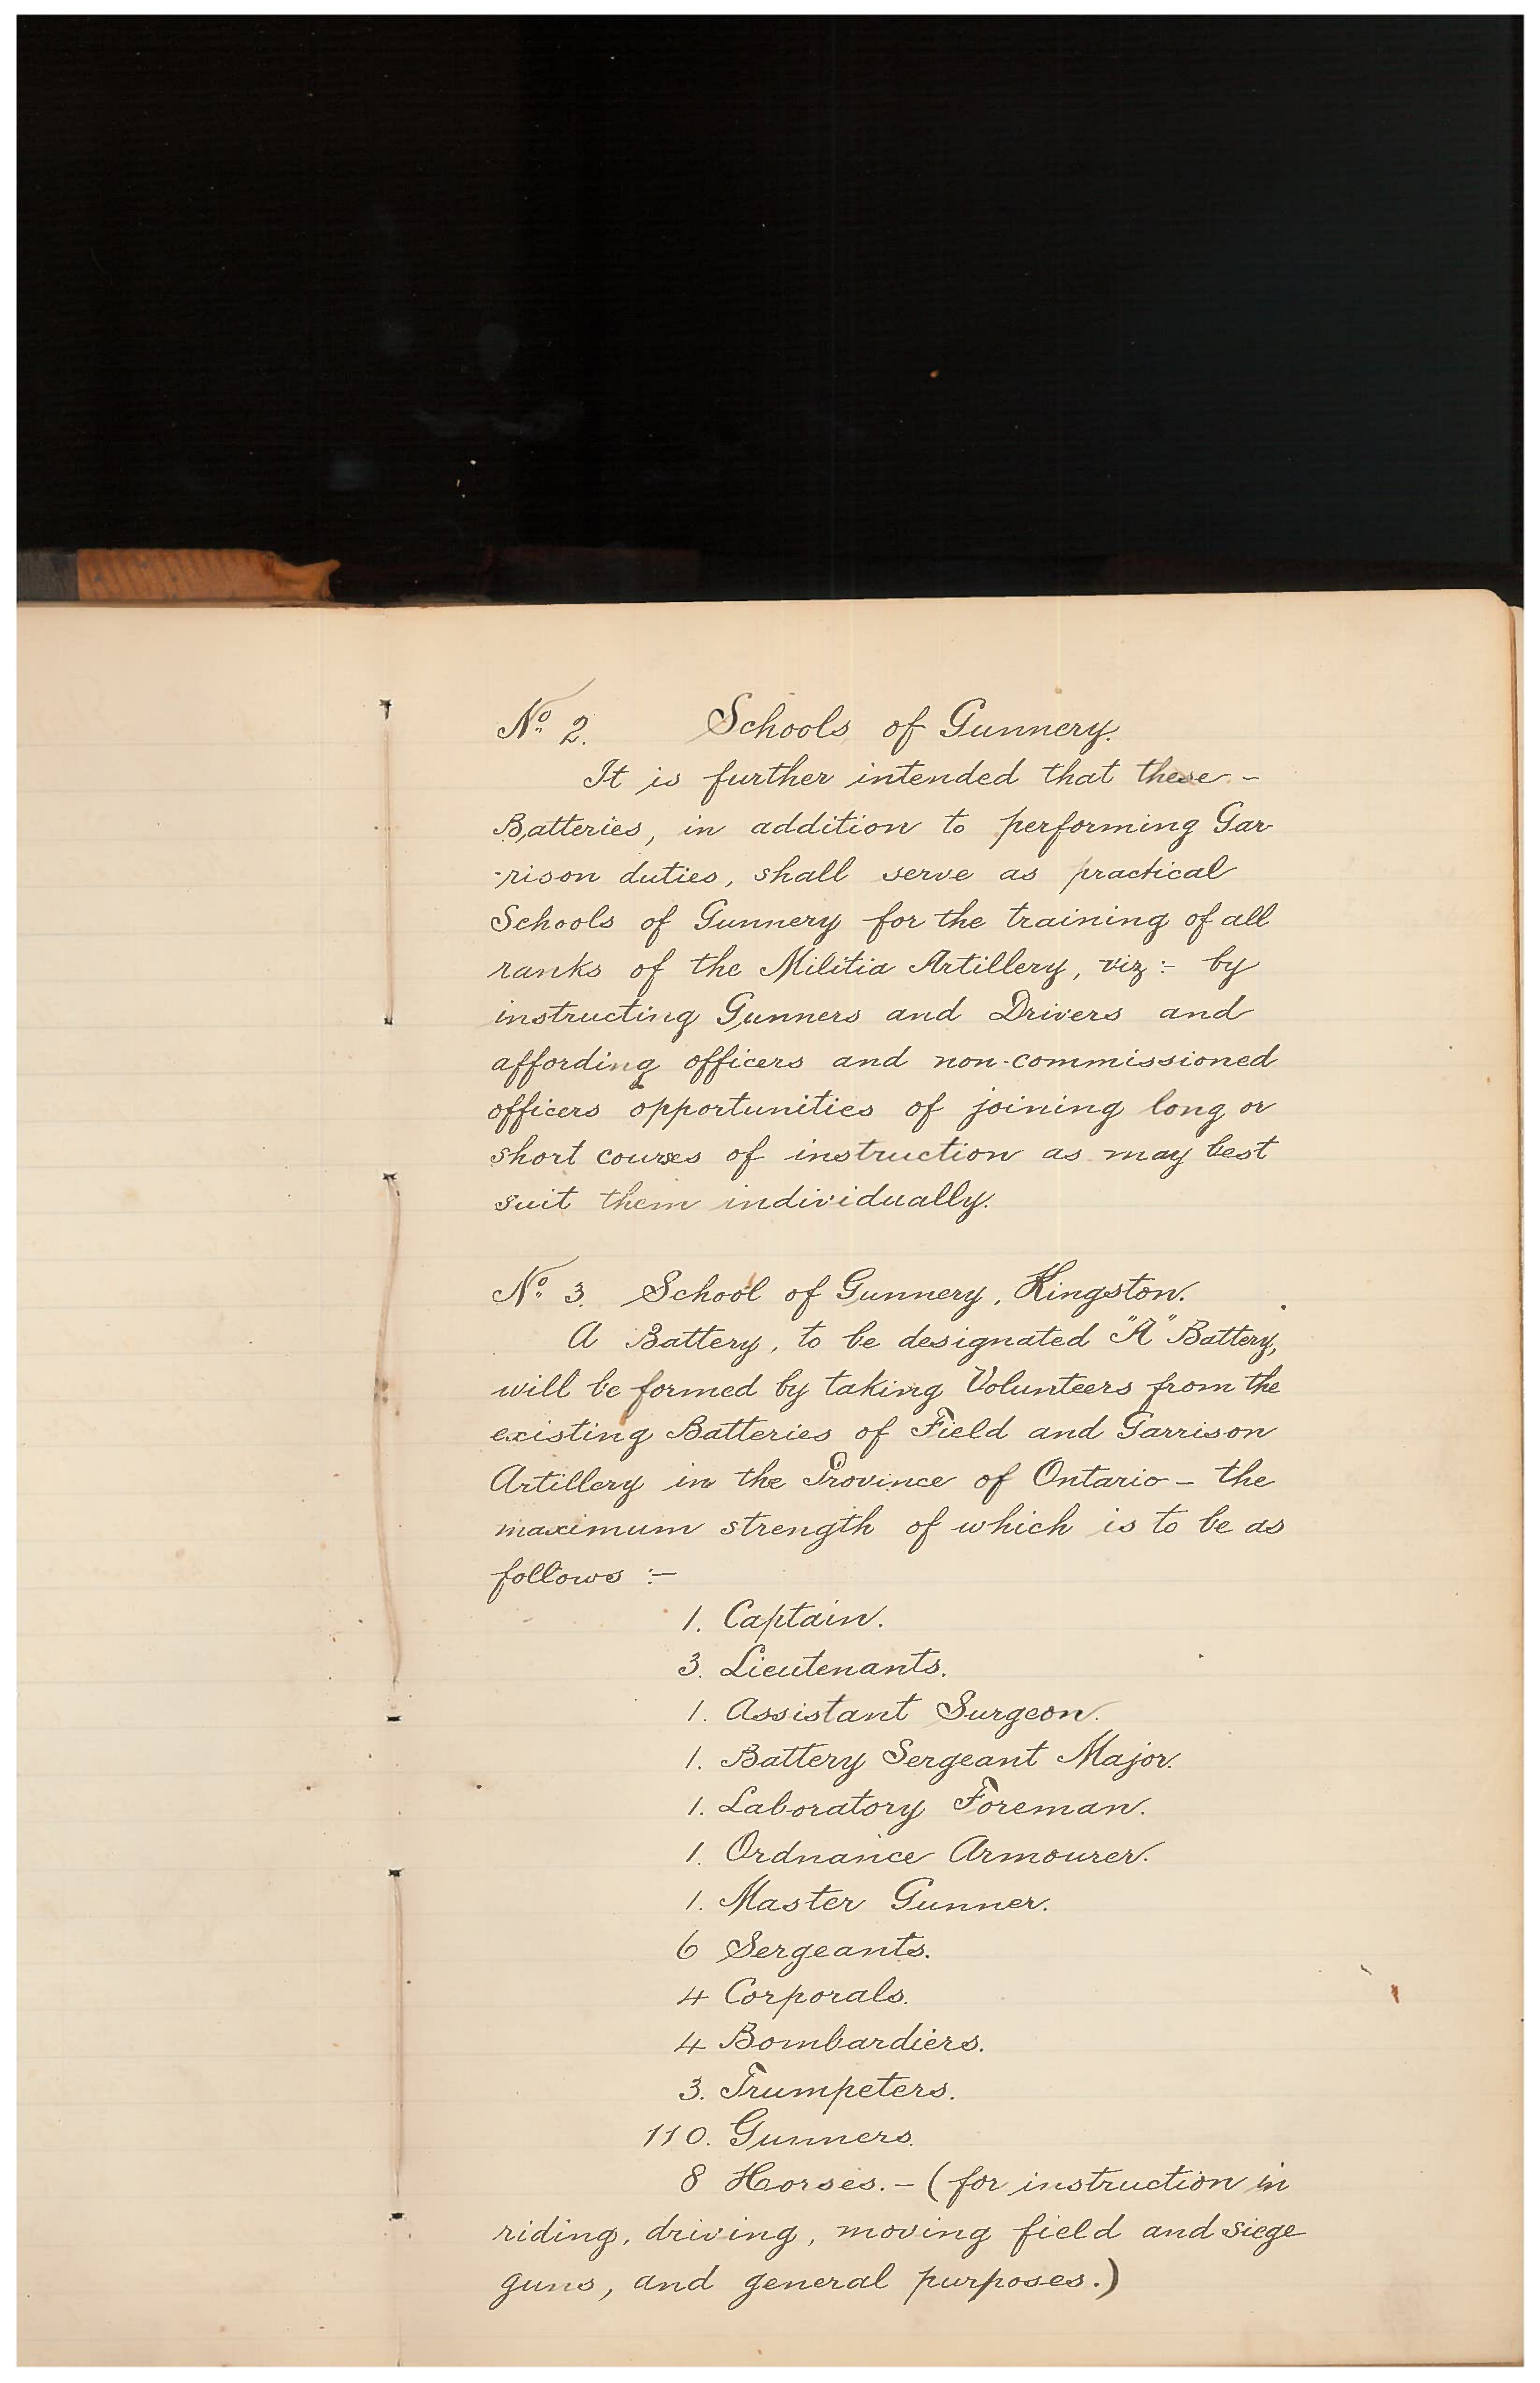 No. 2. Schools of Gunnery.
It is further intended that these -
Batteries, in addition to performing Gar-
-rison duties, shall serve as practical
Schools of Gunnery for the training of all
ranks of the Militia Artillery, viz:- by
instructing Gunners and Drivers and
affording officers and non-commissioned
officers opportunities of joining long or
short courses of instruction as may best
suit them individually.
No. 3. School of Gunnery, Kingston.
A Battery, to be designated "A" Battery,
will be formed by taking Volunteers from the
existing Batteries of Field and Garrison
Artillery in the Province of Ontario - the
maximum strength of which is to be as
follows :-
1. Captain.
3. Lieutenants.
1. Assistant Surgeon.
1. Battery Sergeant Major.
1. Laboratory Foreman.
1. Ordnance Armourer.
1. Master Gunner.
6 Sergeants.
4 Corporals.
4 Bombardiers.
3. Trumpeters.
110. Gunners.
8 Horses. - (for instruction in
riding, driving, moving field and siege
guns, and general purposes.)